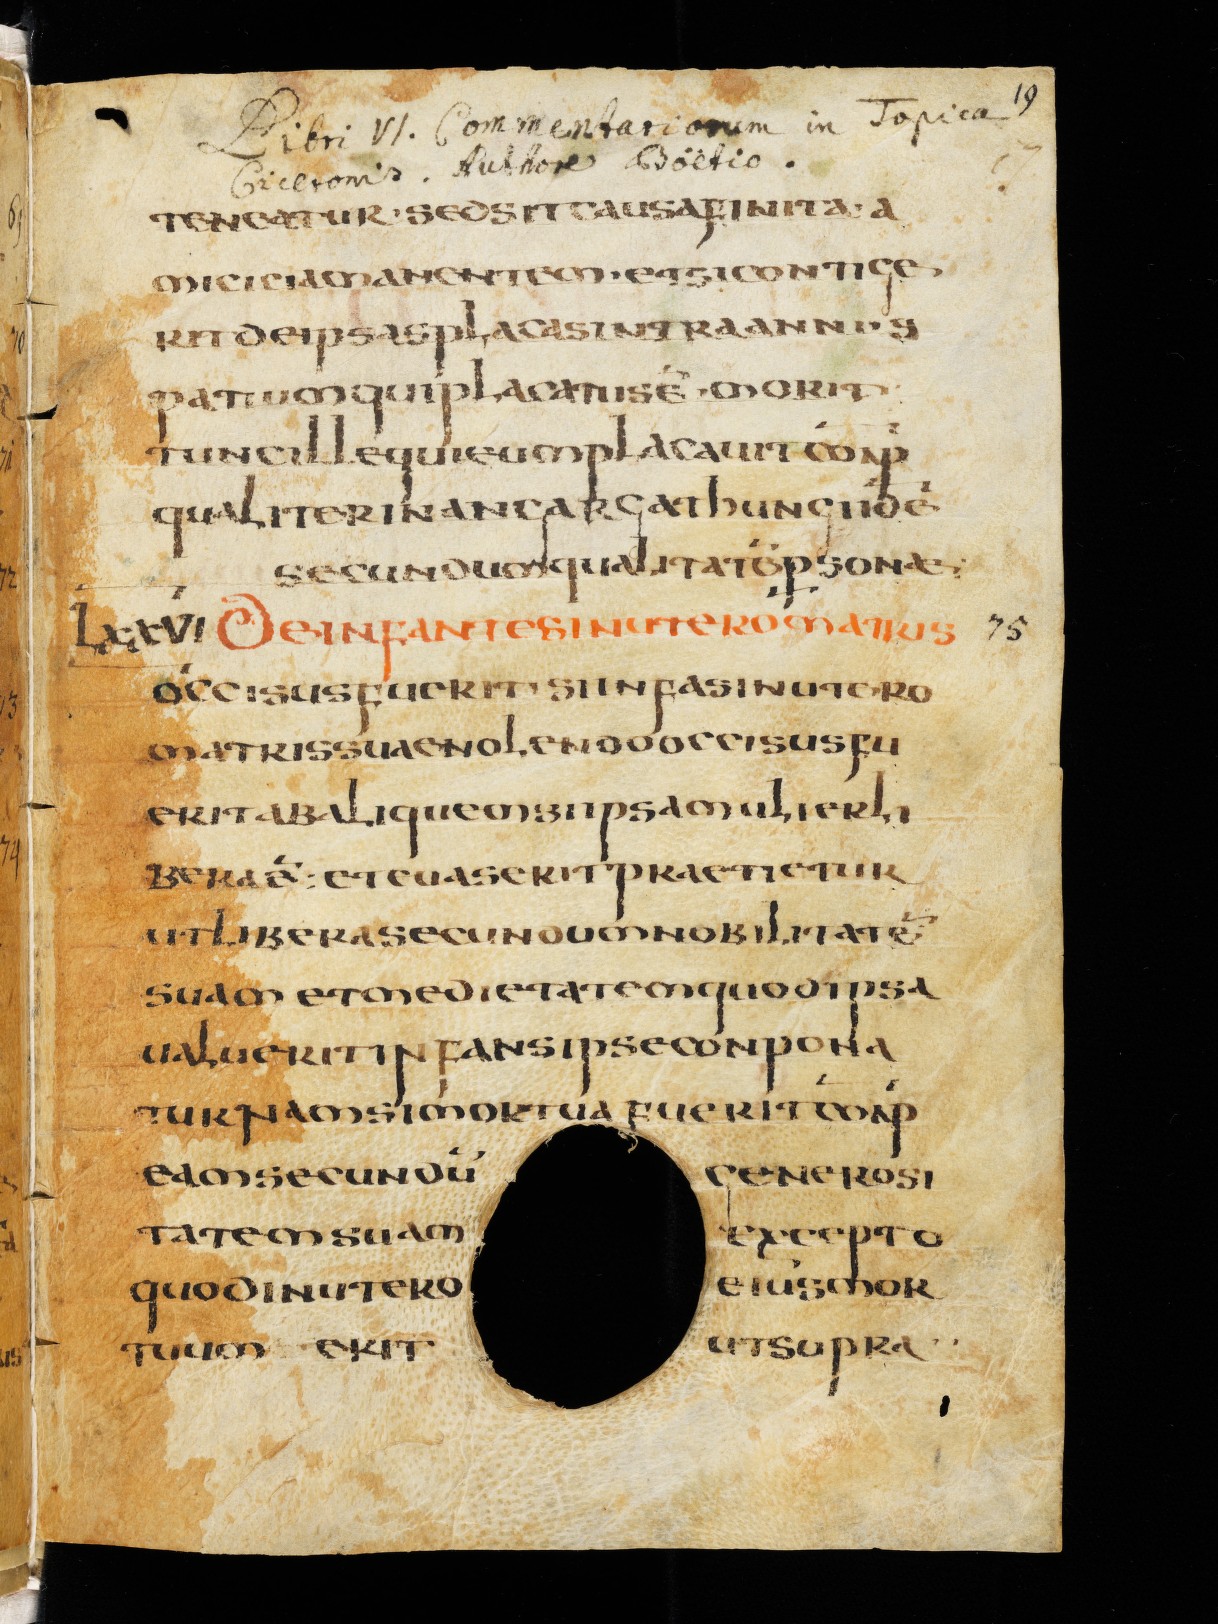 19
Libri VI. Commentariorum in Topica
Ciceronis. Authore Böëtio.
teneatur · sed sit causa finita · a
miciciam anentem · et si contige
rit de ipsas placas intra anni s
patium qui placatus ē̄ · morit
tunc ille qui eum placauit conp
qualiter in ancargathungi id ē
secundum qualitatē psonae ·
LXXVI De infantes in utero matris 75
occisus fuerit · Si infas in utero
matris suae nolendo occisus fu
erit ab aliquem si ipsa mulier li
bera ē · et euaserit praetietur
ut libera secundum nobilitatē
suam et medietatem quod ipsa
ualuerit infans ipse conpona
tur nam si mortua fuerit conp
eam secundū generosi
tatem suam excepto
quod in utero eius mor
tuum erit ut supra ·